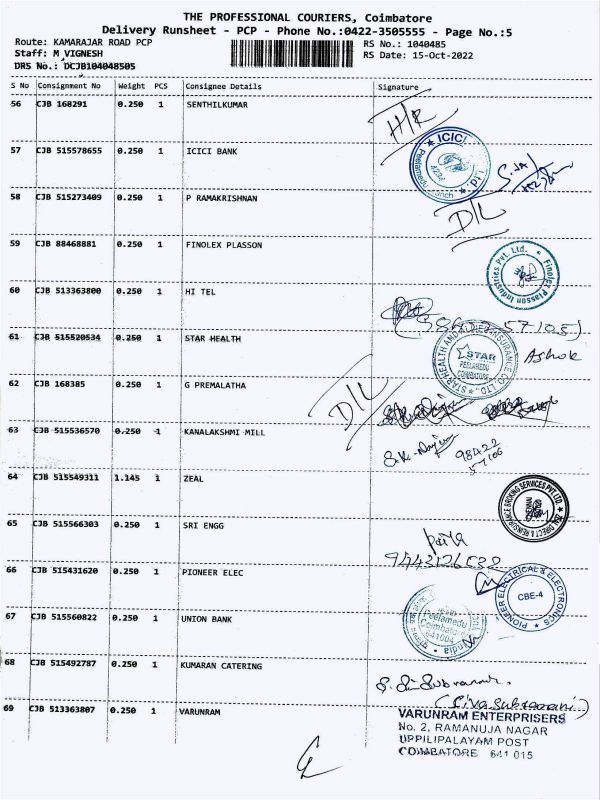 THE PROFESSIONAL COURIERS, Coimbatore
Delivery Runsheet - PCP - Phone No.:0422-3505555 - Page No.:5
Route: KAMARAJAR ROAD PCP
RS No.: 1040485
Staff: M VIGNESH
RS Date: 15-Oct-2022
DRS No.: DCJB104048505
S No Consignment No Weight PCS Consignee Details Signature
56 CJB 168291 0.250 1 SENTHILKUMAR
H/R
57 CJB 515578655 0.250 1 ICICI BANK
ICICI
58 CJB 515273409 0.250 1 P RAMAKRISHNAN
D/L
59 CJB 88468881 0.250 1 FINOLEX PLASSON
Finolex Plasson Industries Pvt. Ltd.
60 CJB 513363800 0.250 1 HI TEL
61 CJB 515520534 0.250 1 STAR HEALTH
STAR HEALTH AND ALLIED INSURANCE CO LTD.
STAR
PEELAMEDU
COIMBATORE
Ashok
62 CJB 168385 0.250 1 G PREMALATHA
D/L
63 CJB 515536570 0.250 1 KANALAKSHMI MILL
98422
57106
64 CJB 515549311 1.145 1 ZEAL
65 CJB 515566303 0.250 1 SRI ENGG
66 CJB 515431620 0.250 1 PIONEER ELEC
PIONEER ELECTRICAL & ELECTRONICS
CBE-4
67 CJB 515560822 0.250 1 UNION BANK
Peelamedu
Coimbatore
641004
India
68 CJB 515492787 0.250 1 KUMARAN CATERING
(Sivasubramani)
69 CJB 513363807 0.250 1 VARUNRAM
VARUNRAM ENTERPRISERS
No. 2, RAMANUJA NAGAR
UPPILIPALAYAM POST
COIMBATORE 641 015